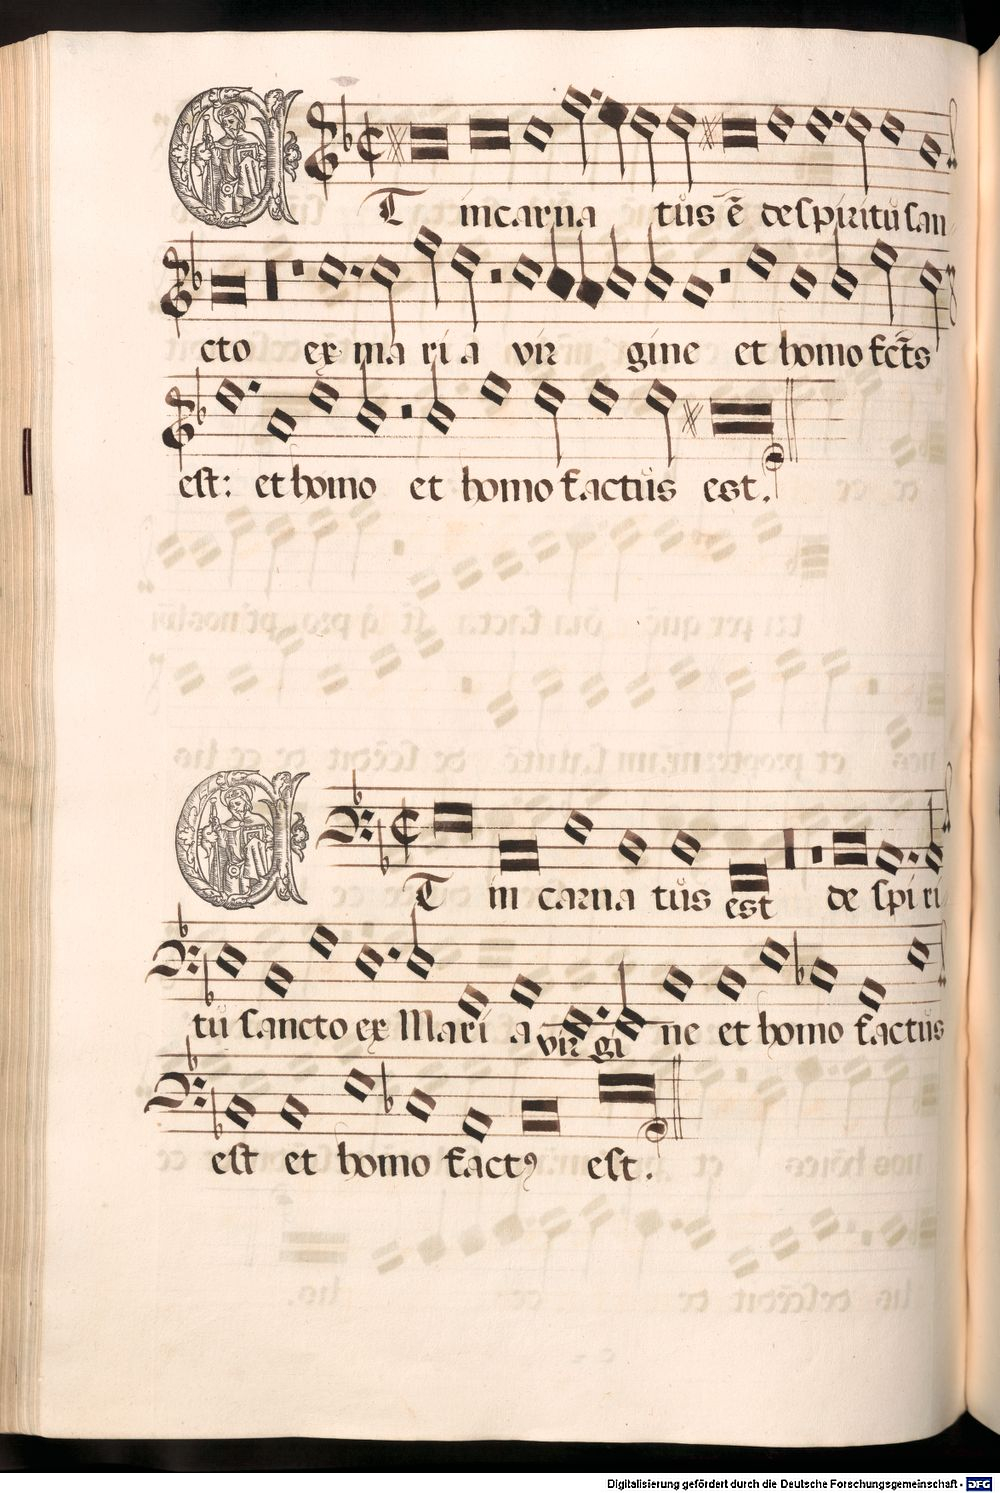 ET incarna tus ē de spiritu san
cto ex maria vir gine et homo fcts
est: et homo et homo factus est.
ET in carna tus est de spiri
tu sancto ex Mari a vir gi ne et homo factus
est et homo fact9 est.
Digitalisierung gefördert durch die Deutsche Forschungsgemeinschaft - DFG